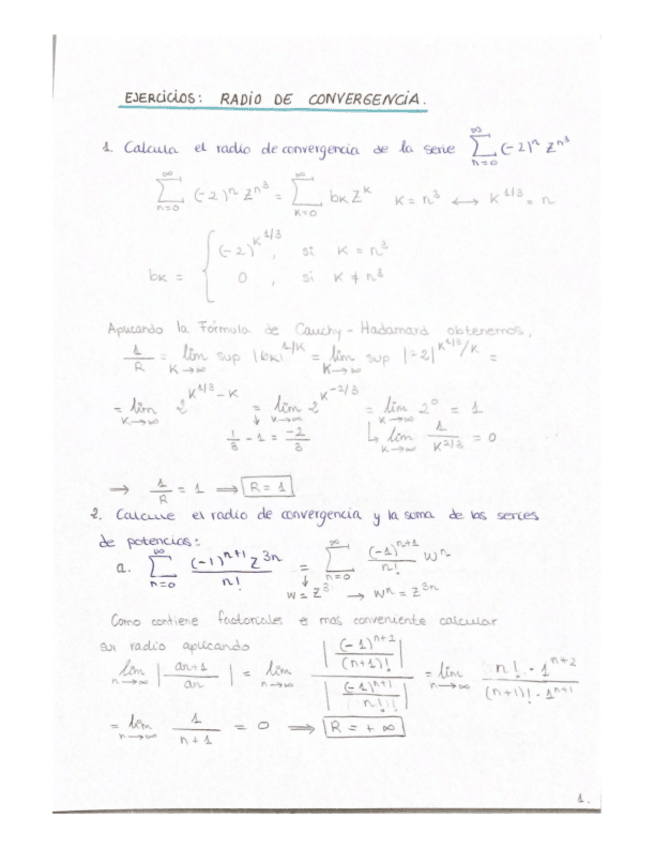 EJERCICIOS: RADIO DE CONVERGENCIA.
1. Calcula el radio de convergencia de la serie ∑_{n=0}^{∞} (-2)^n z^{n^3}
∑_{n=0}^{∞} (-2)^n z^{n^3} = ∑_{K=0}^{∞} b_K z^K K = n^3 ⟷ K^{1/3} = n
b_K = { (-2)^{K^{1/3}}, si K = n^3
0, si K ≠ n^3
Aplicando la Fórmula de Cauchy-Hadamard obtenemos,
1/R = lím sup_{K→∞} |b_K|^{1/K} = lím sup_{K→∞} |-2|^{K^{1/3}/K} =
= lím_{K→∞} 2^{K^{1/3} - K} = lím_{K→∞} 2^{K^{-2/3}} = lím_{K→∞} 2^0 = 1
1/3 - 1 = -2/3 ↳ lím_{K→∞} 1/K^{2/3} = 0
⟹ 1/R = 1 ⟹ R = 1
2. Calcule el radio de convergencia y la suma de las series
de potencias:
a. ∑_{n=0}^{∞} (-1)^{n+1} z^{3n} / n! = ∑_{n=0}^{∞} (-1)^{n+1} / n! w^n
w = z^3 → w^n = z^{3n}
Como contiene factoriales e mas conveniente calcular
su radio aplicando
lím_{n→∞} |a_{n+1} / a_n| = lím_{n→∞} |(-1)^{n+2} / (n+1)!| / |(-1)^{n+1} / n!| = lím_{n→∞} n! · 1^{n+2} / (n+1)! · 1^{n+1}
= lím_{n→∞} 1 / n+1 = 0 ⟹ R = +∞
1.